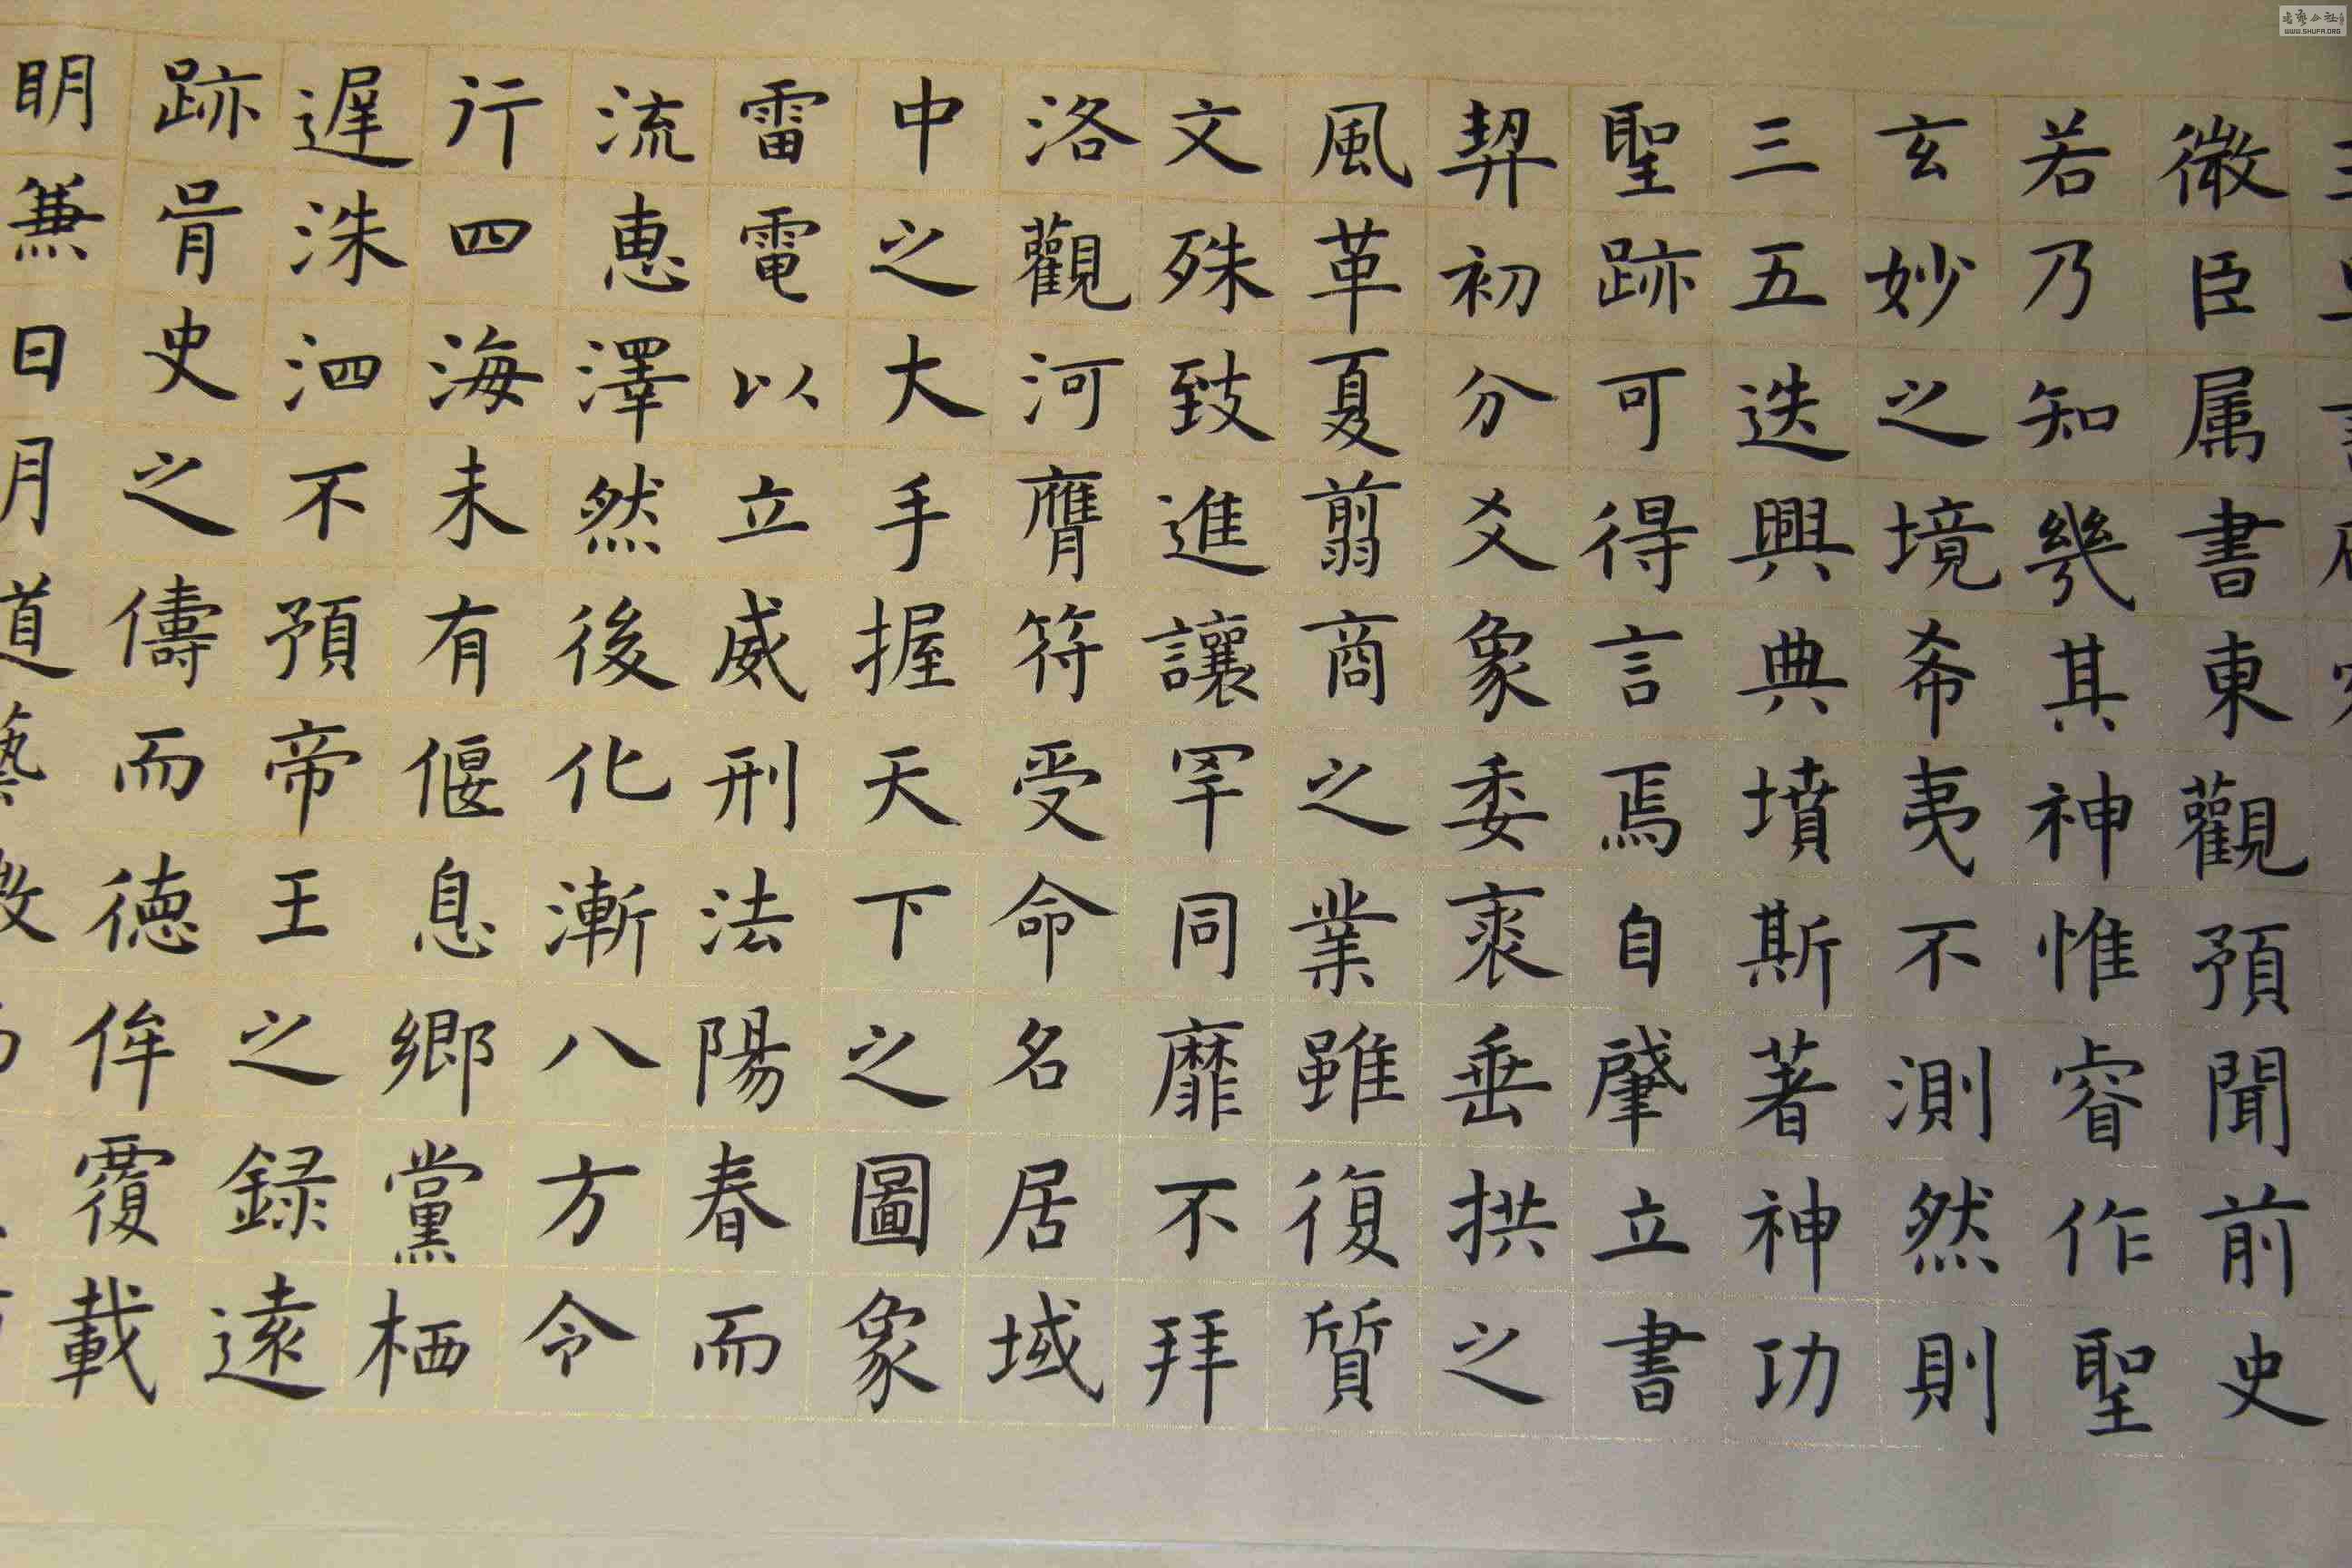 微臣属書東觀預聞前史
若乃知幾其神惟睿作聖
玄妙之境希夷不測然則
三五迭興典墳斯著神功
聖跡可得言焉自肇立書
契初分爻象委裘垂拱之
風革夏翦商之業雖復質
文殊致進讓罕同靡不拜
洛觀河膺符受命名居域
中之大手握天下之圖象
雷電以立威刑法陽春而
流惠澤然後化漸八方令
行四海未有偃息鄉黨栖
遲洙泗不預帝王之録遠
跡胥史之儔而德侔覆載
明兼日月道藝
WWW.SHUFA.ORG